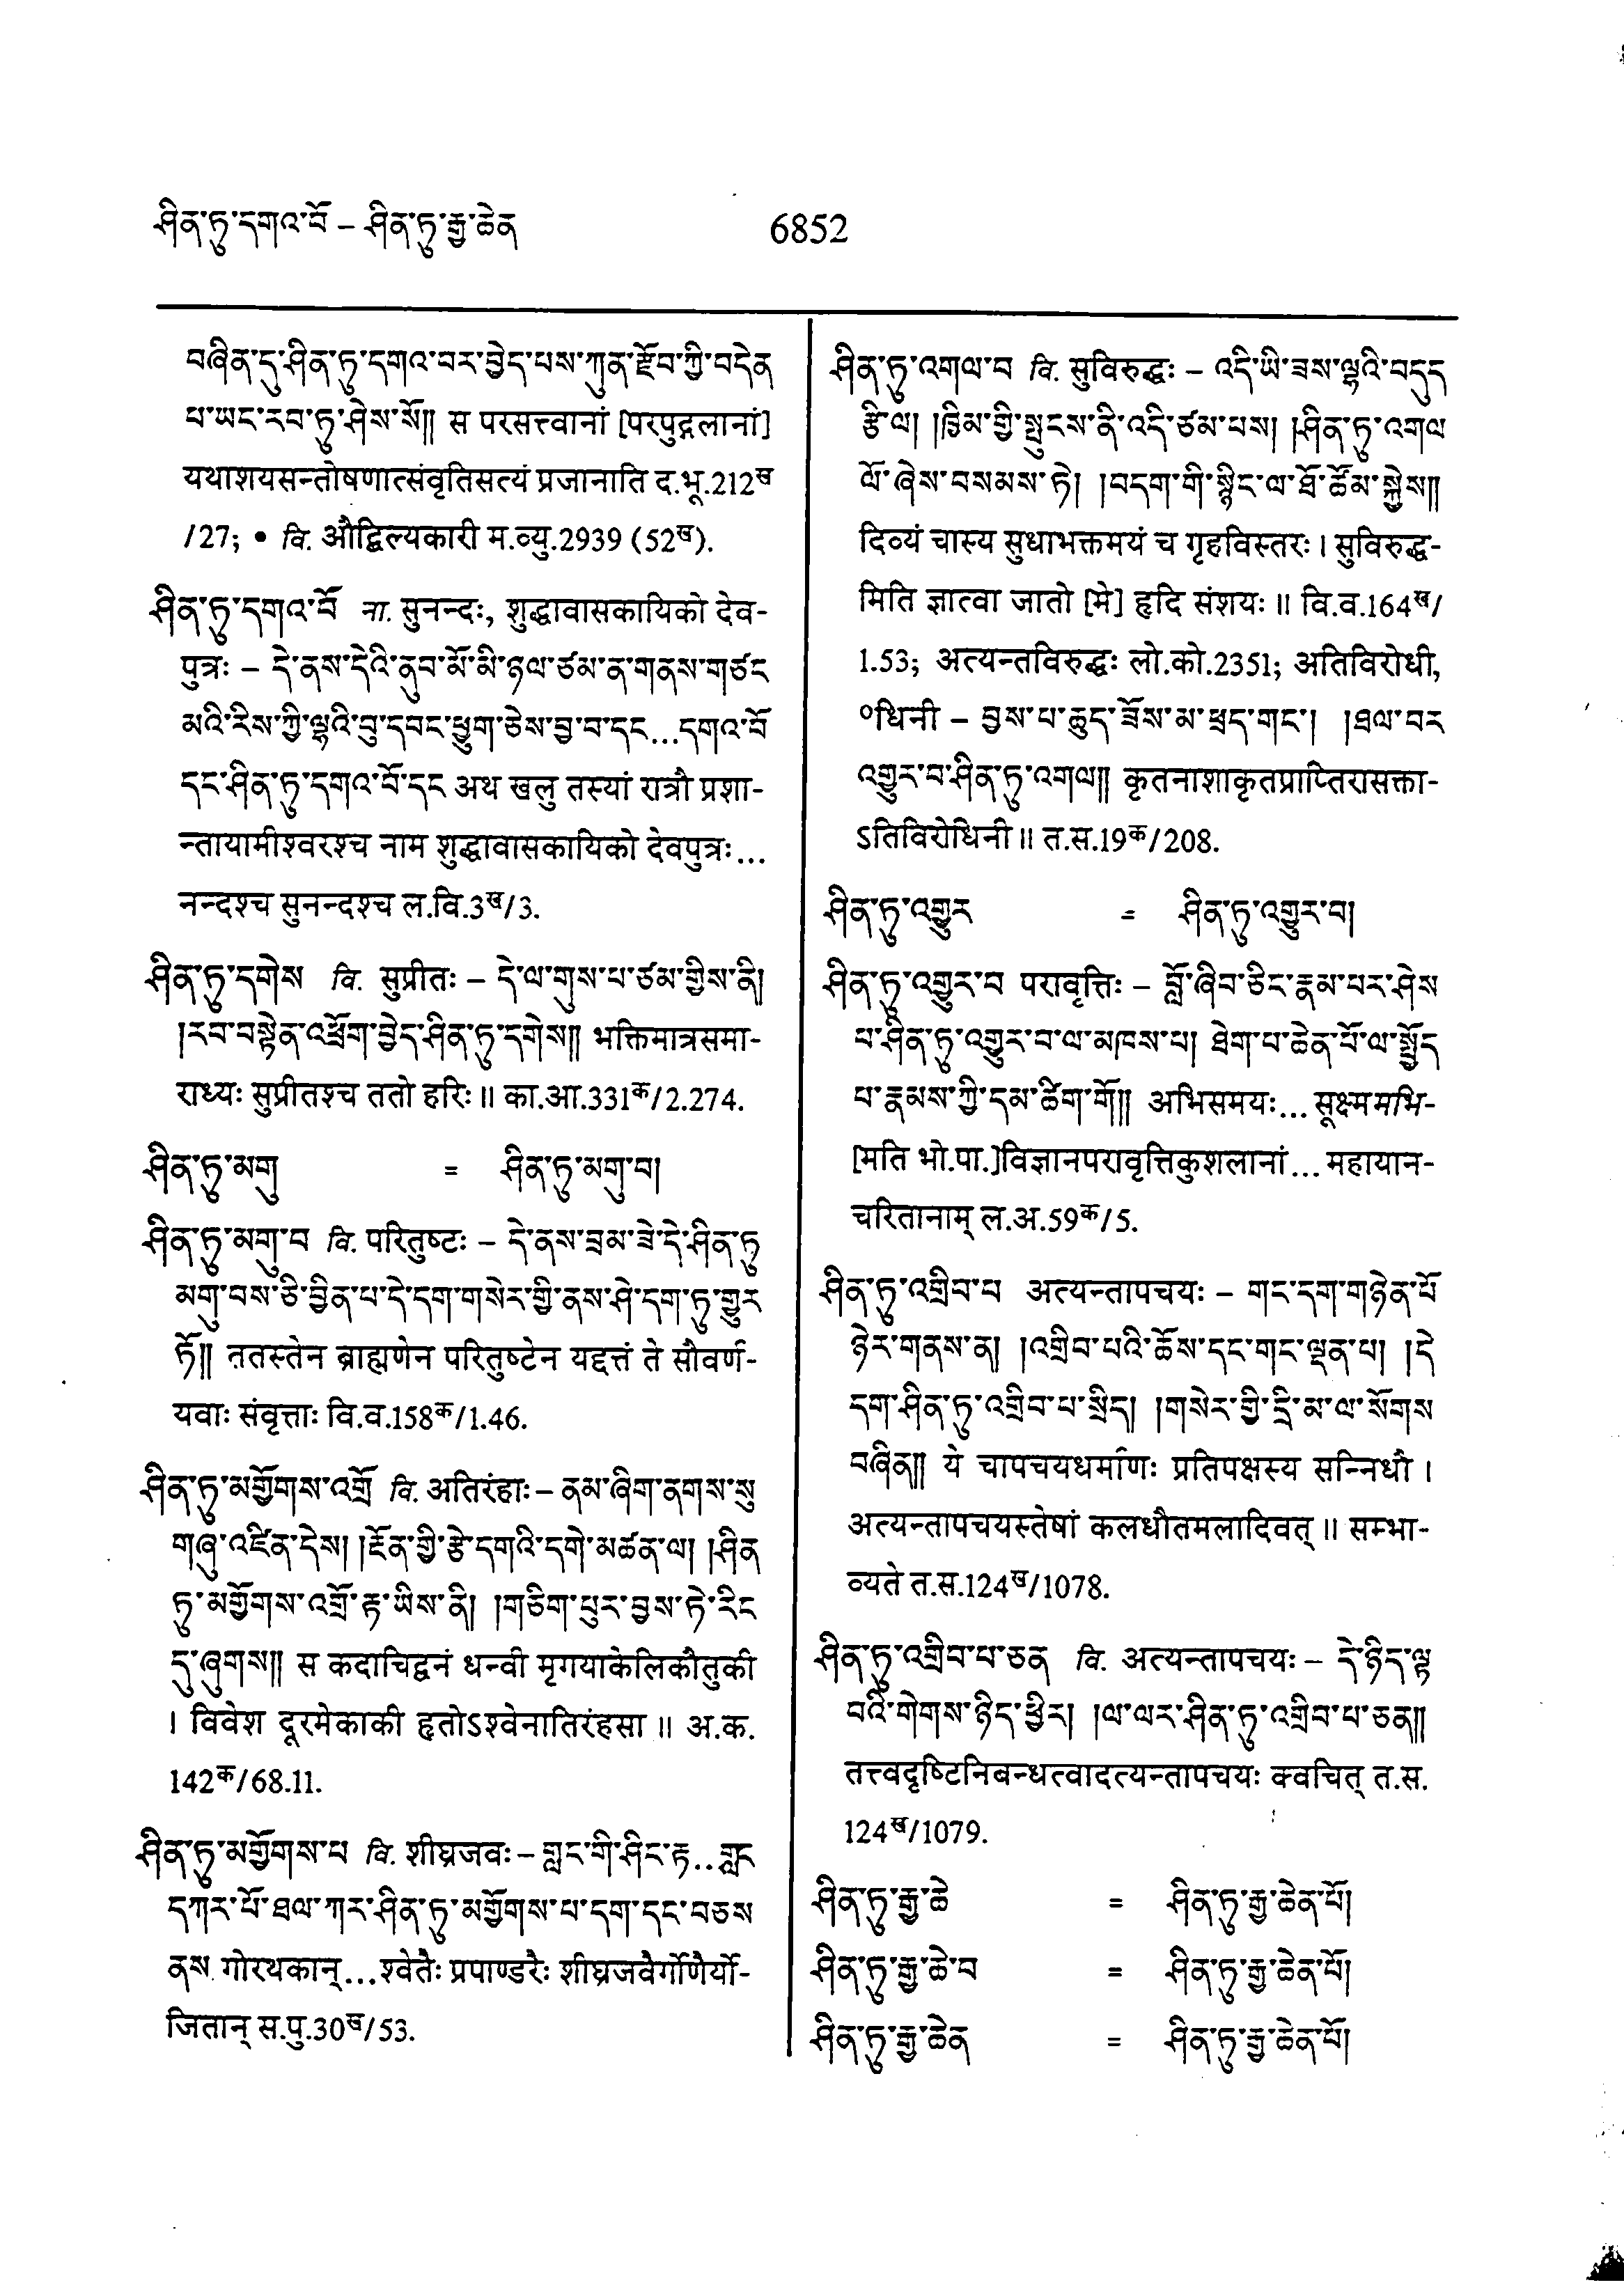 ཤིན་ཏུ་དགའ་བོ – ཤིན་ཏུ་རྒྱ་ཆེན
6852
བཞིན་དུ་ཤིན་ཏུ་དགའ་བར་བྱེད་པས་ཀུན་རྫོབ་ཀྱི་བདེན
པ་ཡང་རབ་ཏུ་ཤེས་སོ༎ स परसत्त्वानां [परपुद्गलानां]
यथाशयसन्तोषणात्संवृतिसत्यं प्रजानाति द.भू.212ख
/27; • वि. औद्विल्यकारी म.व्यु.2939 (52ख).
ཤིན་ཏུ་དགའ་བོ ना. सुनन्दः, शुद्धावासकायिको देव-
पुत्रः – དེ་ནས་དེའི་ནུབ་མོ་མི་ཉལ་ཙམ་ན་གནས་གཙང
མའི་རིས་ཀྱི་ལྷའི་བུ་དབང་ཕྱུག་ཅེས་བྱ་བ་དང...དགའ་བོ
དང་ཤིན་ཏུ་དགའ་བོ་དང अथ खलु तस्यां रात्रौ प्रशा-
न्तायामीश्वरश्च नाम शुद्धावासकायिको देवपुत्रः...
नन्दश्च सुनन्दश्च ल.वि.3ख/3.
ཤིན་ཏུ་དགེས वि. सुप्रीतः – དེ་ལ་གུས་པ་ཙམ་གྱིས་ནི།
།རབ་བསྟེན་འཕྲོག་བྱེད་ཤིན་ཏུ་དགེས༎ भक्तिमात्रसमा-
राध्यः सुप्रीतश्च ततो हरिः ॥ का.आ.331क/2.274.
ཤིན་ཏུ་མགུ = ཤིན་ཏུ་མགུ་བ།
ཤིན་ཏུ་མགུ་བ वि. परितुष्टः – དེ་ནས་བྲམ་ཟེ་དེ་ཤིན་ཏུ
མགུ་བས་ཅི་བྱིན་པ་དེ་དག་གསེར་གྱི་ནས་ཤེ་དག་ཏུ་གྱུར
ཏོ༎ ततस्तेन ब्राह्मणेन परितुष्टेन यद्दत्तं ते सौवर्ण-
यवाः संवृत्ताः वि.व.158क/1.46.
ཤིན་ཏུ་མགྱོགས་འགྲོ वि. अतिरंहाः – ནམ་ཞིག་ནགས་སུ
གཞུ་འཛིན་དེས། །རྔོན་གྱི་རྩེ་དགའི་དགེ་མཚན་ལ། །ཤིན
ཏུ་མགྱོགས་འགྲོ་རྟ་ཡིས་ནི། །གཅིག་པུར་བྱས་ཏེ་རིང
དུ་ཞུགས༎ स कदाचिद्वनं धन्वी मृगयाकेलिकौतुकी
। विवेश दूरमेकाकी हृतोऽश्वेनातिरंहसा ॥ अ.क.
142क/68.11.
ཤིན་ཏུ་མགྱོགས་པ वि. शीघ्रजवः – གླང་གི་ཤིང་རྟ...གླང
དཀར་པོ་ཐལ་ཀར་ཤིན་ཏུ་མགྱོགས་པ་དག་དང་བཅས
ནས गोरथकान्...श्वेतैः प्रपाण्डरैः शीघ्रजवैर्गोणैर्यो-
जितान् स.पु.30ख/53.
ཤིན་ཏུ་འགལ་བ वि. सुविरुद्धः – འདི་ཡི་ཟས་ལྷའི་བདུད
རྩི་ལ། །ཁྱིམ་གྱི་སྤུངས་ནི་འདི་ཙམ་པས། །ཤིན་ཏུ་འགལ
ལོ་ཞེས་བསམས་ཏེ། །བདག་གི་སྙིང་ལ་ཐོ་ཚོམ་སྐྱེས༎
दिव्यं चास्य सुधाभक्तमयं च गृहविस्तरः । सुविरुद्ध-
मिति ज्ञात्वा जातो [मे] हृदि संशयः ॥ वि.व.164ख/
1.53; अत्यन्तविरुद्धः लो.को.2351; अतिविरोधी,
॰धिनी – བྱས་པ་ཆུད་ཟོས་མ་ཕྲད་གང་། །ཐལ་བར
འགྱུར་བ་ཤིན་ཏུ་འགལ༎ कृतनाशाकृतप्राप्तिरासक्ता-
ऽतिविरोधिनी ॥ त.स.19क/208.
ཤིན་ཏུ་འགྱུར = ཤིན་ཏུ་འགྱུར་བ།
ཤིན་ཏུ་འགྱུར་བ परावृत्तिः – བློ་ཞིབ་ཅིང་རྣམ་བར་ཤེས
པ་ཤིན་ཏུ་འགྱུར་བ་ལ་མཁས་པ། ཐེག་པ་ཆེན་པོ་ལ་སྤྱོད
པ་རྣམས་ཀྱི་དམ་ཚིག་གོ༎ अभिसमयः... सूक्ष्ममभि-
[मति भो.पा.]विज्ञानपरावृत्तिकुशलानां... महायान-
चरितानाम् ल.अ.59क/5.
ཤིན་ཏུ་འགྲིབ་པ अत्यन्तापचयः – གང་དག་གཉེན་པོ
ཉེར་གནས་ན། །འགྲིབ་པའི་ཆོས་དང་གང་ལྡན་པ། །དེ
དག་ཤིན་ཏུ་འགྲིབ་པ་སྲིད། །གསེར་གྱི་དྲི་མ་ལ་སོགས
བཞིན༎ ये चापचयधर्माणः प्रतिपक्षस्य सन्निधौ ।
अत्यन्तापचयस्तेषां कलधौतमलादिवत् ॥ सम्भा-
व्यते त.स.124ख/1078.
ཤིན་ཏུ་འགྲིབ་པ་ཅན वि. अत्यन्तापचयः – དེ་ཉིད་ལྟ
བའི་གེགས་ཉིད་ཕྱིར། །ལ་ལར་ཤིན་ཏུ་འགྲིབ་པ་ཅན༎
तत्त्वदृष्टिनिबन्धत्वादत्यन्तापचयः क्वचित् त.स.
124ख/1079.
ཤིན་ཏུ་རྒྱ་ཆེ = ཤིན་ཏུ་རྒྱ་ཆེན་པོ།
ཤིན་ཏུ་རྒྱ་ཆེ་བ = ཤིན་ཏུ་རྒྱ་ཆེན་པོ།
ཤིན་ཏུ་རྒྱ་ཆེན = ཤིན་ཏུ་རྒྱ་ཆེན་པོ།